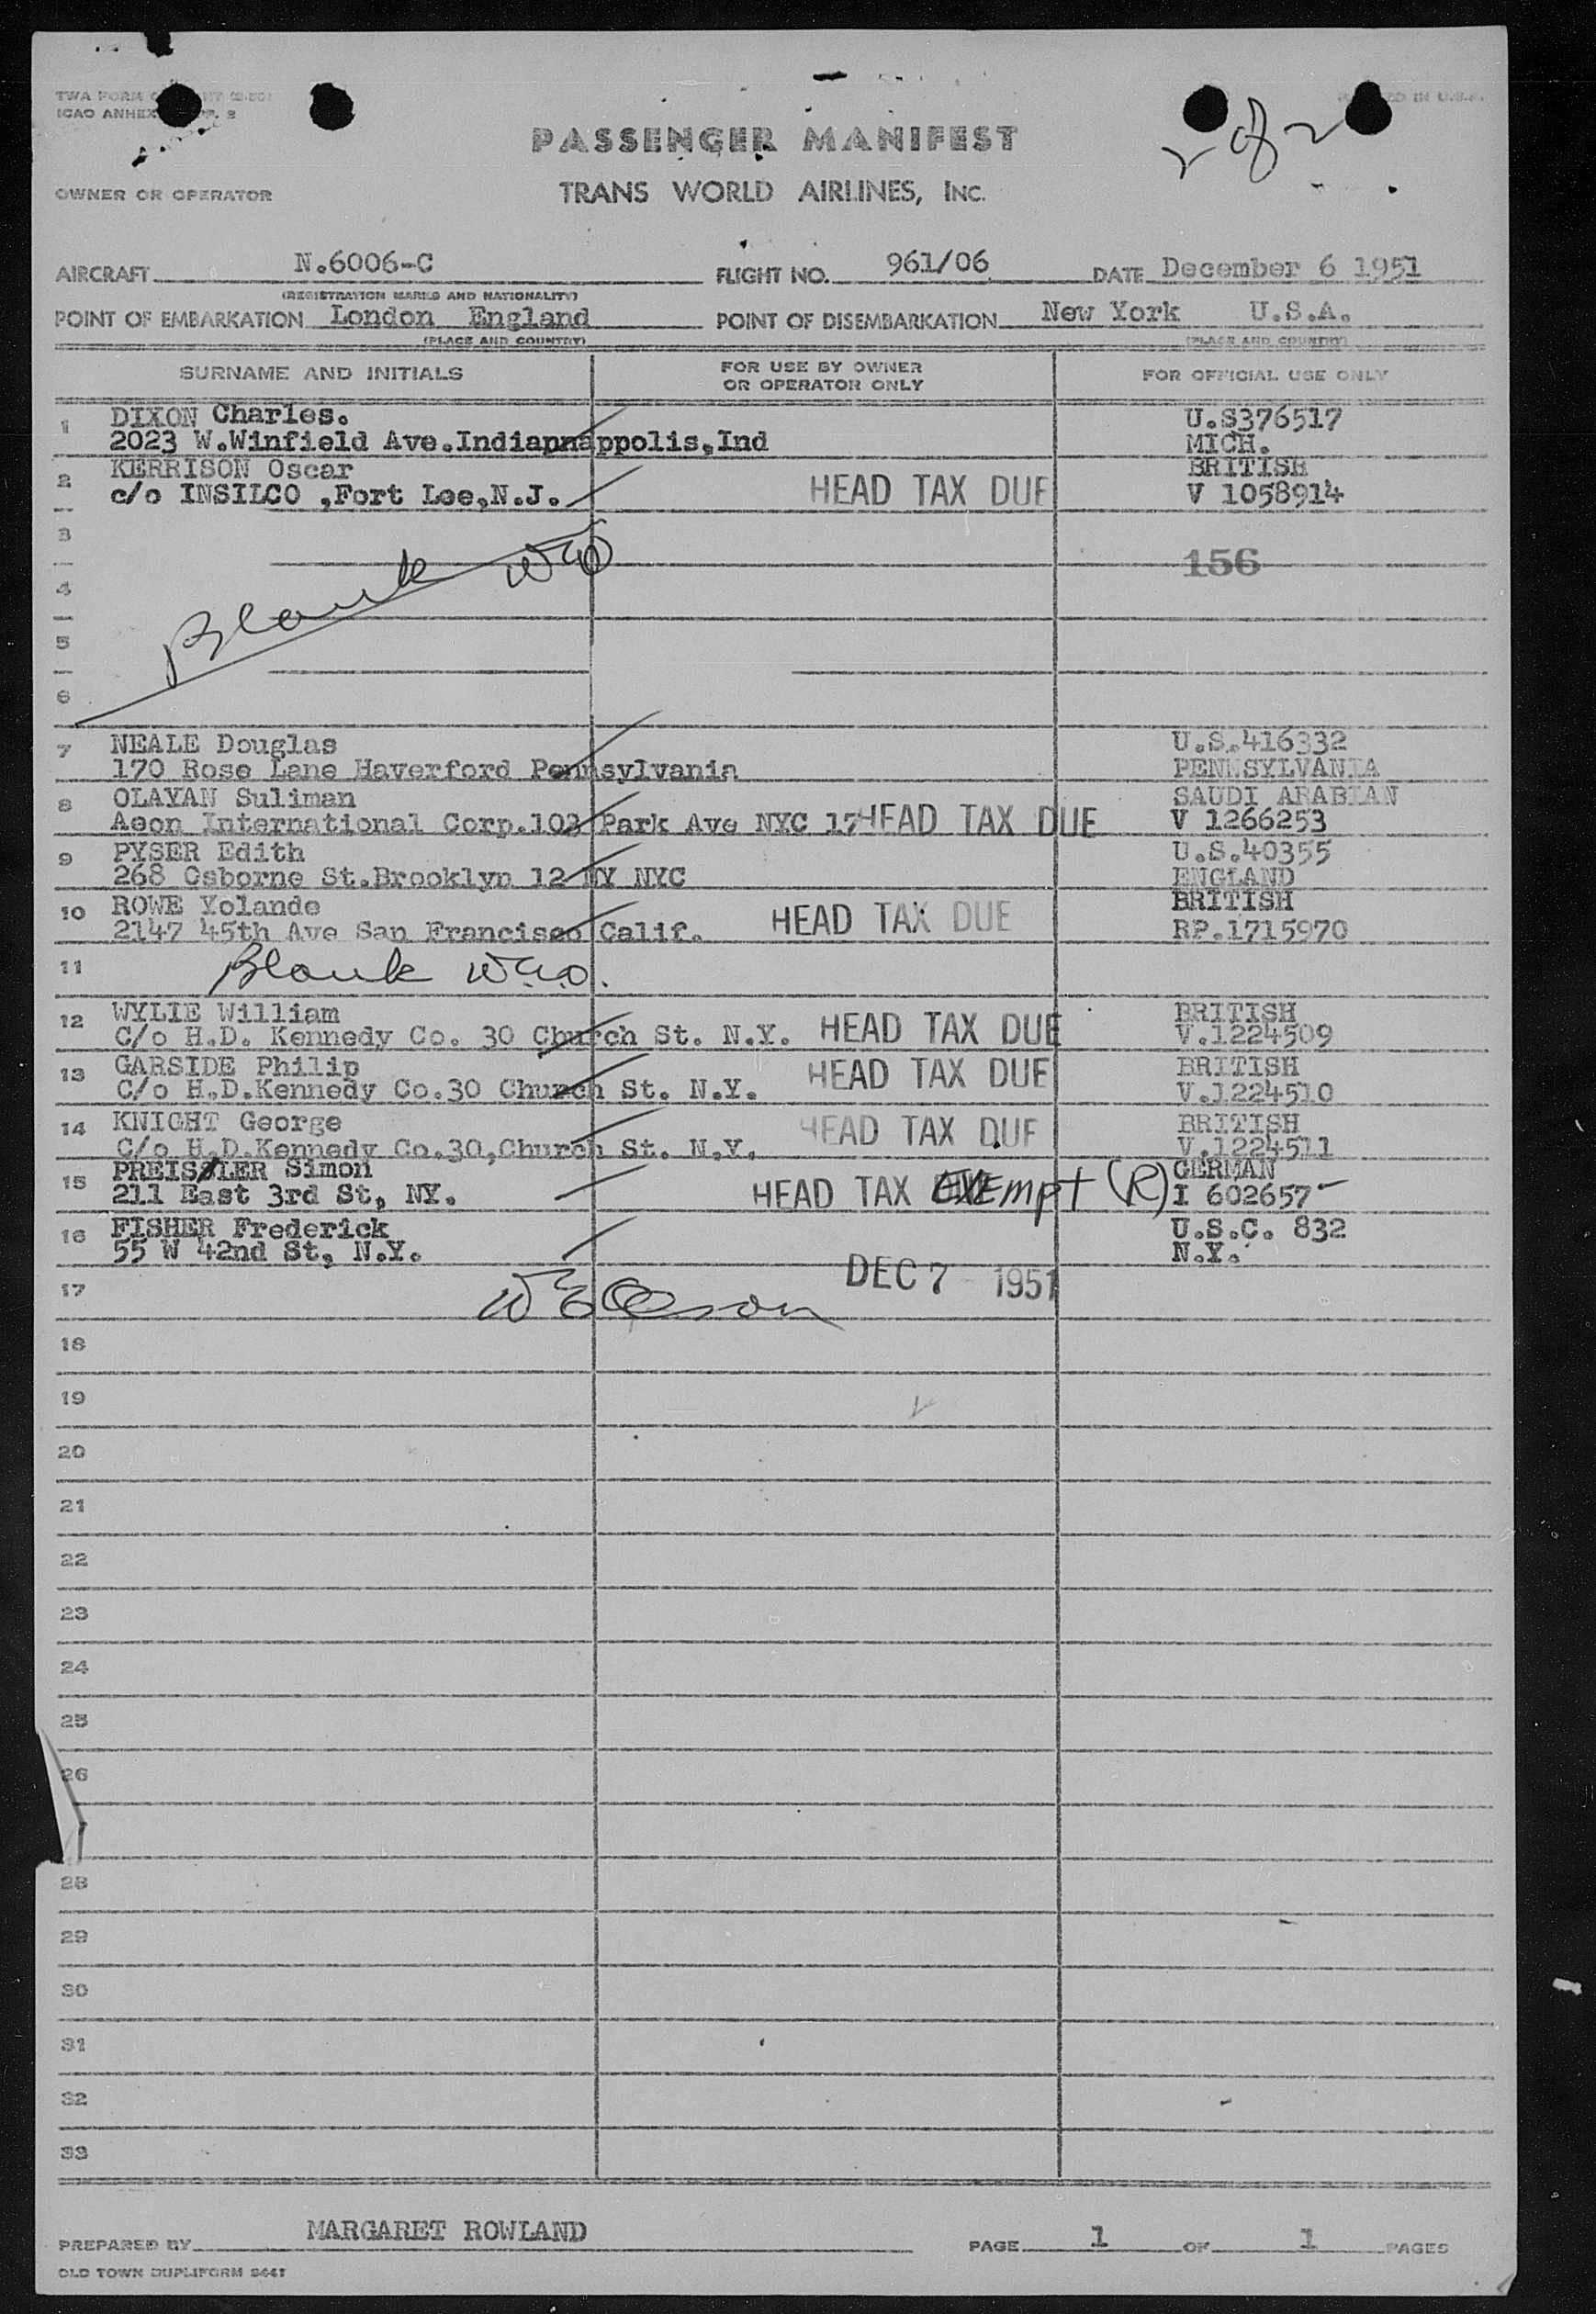 TWA FORM
ICAO ANNEX
2 of 2
PASSENGER MANIFEST
OWNER OR OPERATOR
TRANS WORLD AIRLINES, INC.
AIRCRAFT N.6006-C FLIGHT NO. 961/06 DATE December 6 1951
(REGISTRATION MARKS AND NATIONALITY)
POINT OF EMBARKATION London England POINT OF DISEMBARKATION New York U.S.A.
(PLACE AND COUNTRY) (PLACE AND COUNTRY)
SURNAME AND INITIALS FOR USE BY OWNER OR OPERATOR ONLY FOR OFFICIAL USE ONLY
1 DIXON Charles. U.S376517
2023 W.Winfield Ave.Indiapnappolis,Ind MICH.
2 KERRISON Oscar HEAD TAX DUE BRITISH
c/o INSILCO ,Fort Lee,N.J. V 1058914
3
156
4 Blank WEO
5
6
7 NEALE Douglas U.S.416332
170 Rose Lane Haverford Pennsylvania PENNSYLVANIA
8 OLAYAN Suliman SAUDI ARABIAN
Aeon International Corp.103 Park Ave NYC 17 HEAD TAX DUE V 1266253
9 PYSER Edith U.S.40355
268 Osborne St.Brooklyn 12 NY NYC ENGLAND
10 ROWE Yolande HEAD TAX DUE BRITISH
2147 45th Ave San Francisco Calif. RP.1715970
11 Blank W.E.O.
12 WYLIE William HEAD TAX DUE BRITISH
C/o H.D. Kennedy Co. 30 Church St. N.Y. V.1224509
13 GARSIDE Philip HEAD TAX DUE BRITISH
C/o H.D.Kennedy Co.30 Church St. N.Y. V.1224510
14 KNIGHT George HEAD TAX DUE BRITISH
C/o H.D.Kennedy Co.30,Church St. N.Y. V.1224511
15 PREISSLER Simon HEAD TAX Exempt (R) GERMAN
211 East 3rd St, NY. I 602657
16 FISHER Frederick U.S.C. 832
55 W 42nd St, N.Y. N.Y.
DEC 7 1951
17 WEOlson
18
19
20
21
22
23
24
25
26
28
29
30
31
32
33
PREPARED BY MARGARET ROWLAND PAGE 1 OF 1 PAGES
OLD TOWN DUPLIFORM